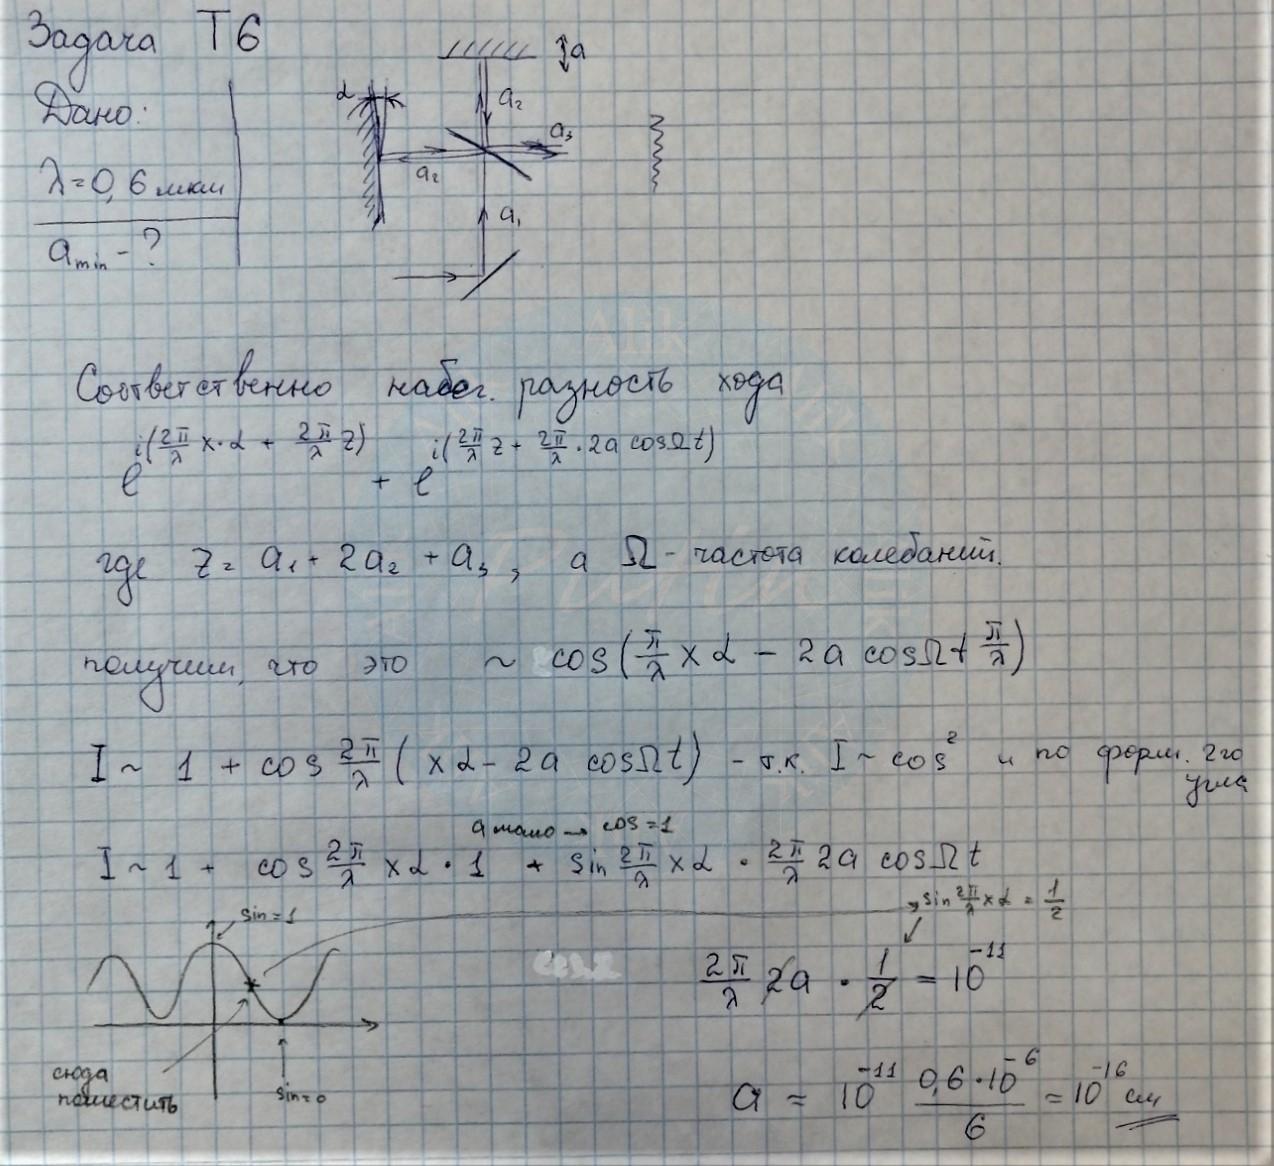 Задача Т6
Дано:
λ = 0,6 мкм
a min - ?
α
a
a₂
a₃
a₂
a₁
Соответственно набег. разность хода
e^{i(2π/λ x·α + 2π/λ z)} + e^{i(2π/λ z + 2π/λ · 2a cosΩt)}
где z = a₁ + 2a₂ + a₃, а Ω - частота колебаний.
получим, что это ~ cos(π/λ xα - 2a cosΩt π/λ)
I ~ 1 + cos 2π/λ (xα - 2a cosΩt) - т.к. I ~ cos² и по форм. 2го угла
a мало → cos = 1
I ~ 1 + cos 2π/λ xα · 1 + sin 2π/λ xα · 2π/λ 2a cosΩt
sin = 1
sin 2π/λ xα = 1/2
2π/λ 2a · 1/2 = 10⁻¹¹
сюда поместить
sin = 0
a = 10⁻¹¹ 0,6·10⁻⁶/6 = 10⁻¹⁶ см